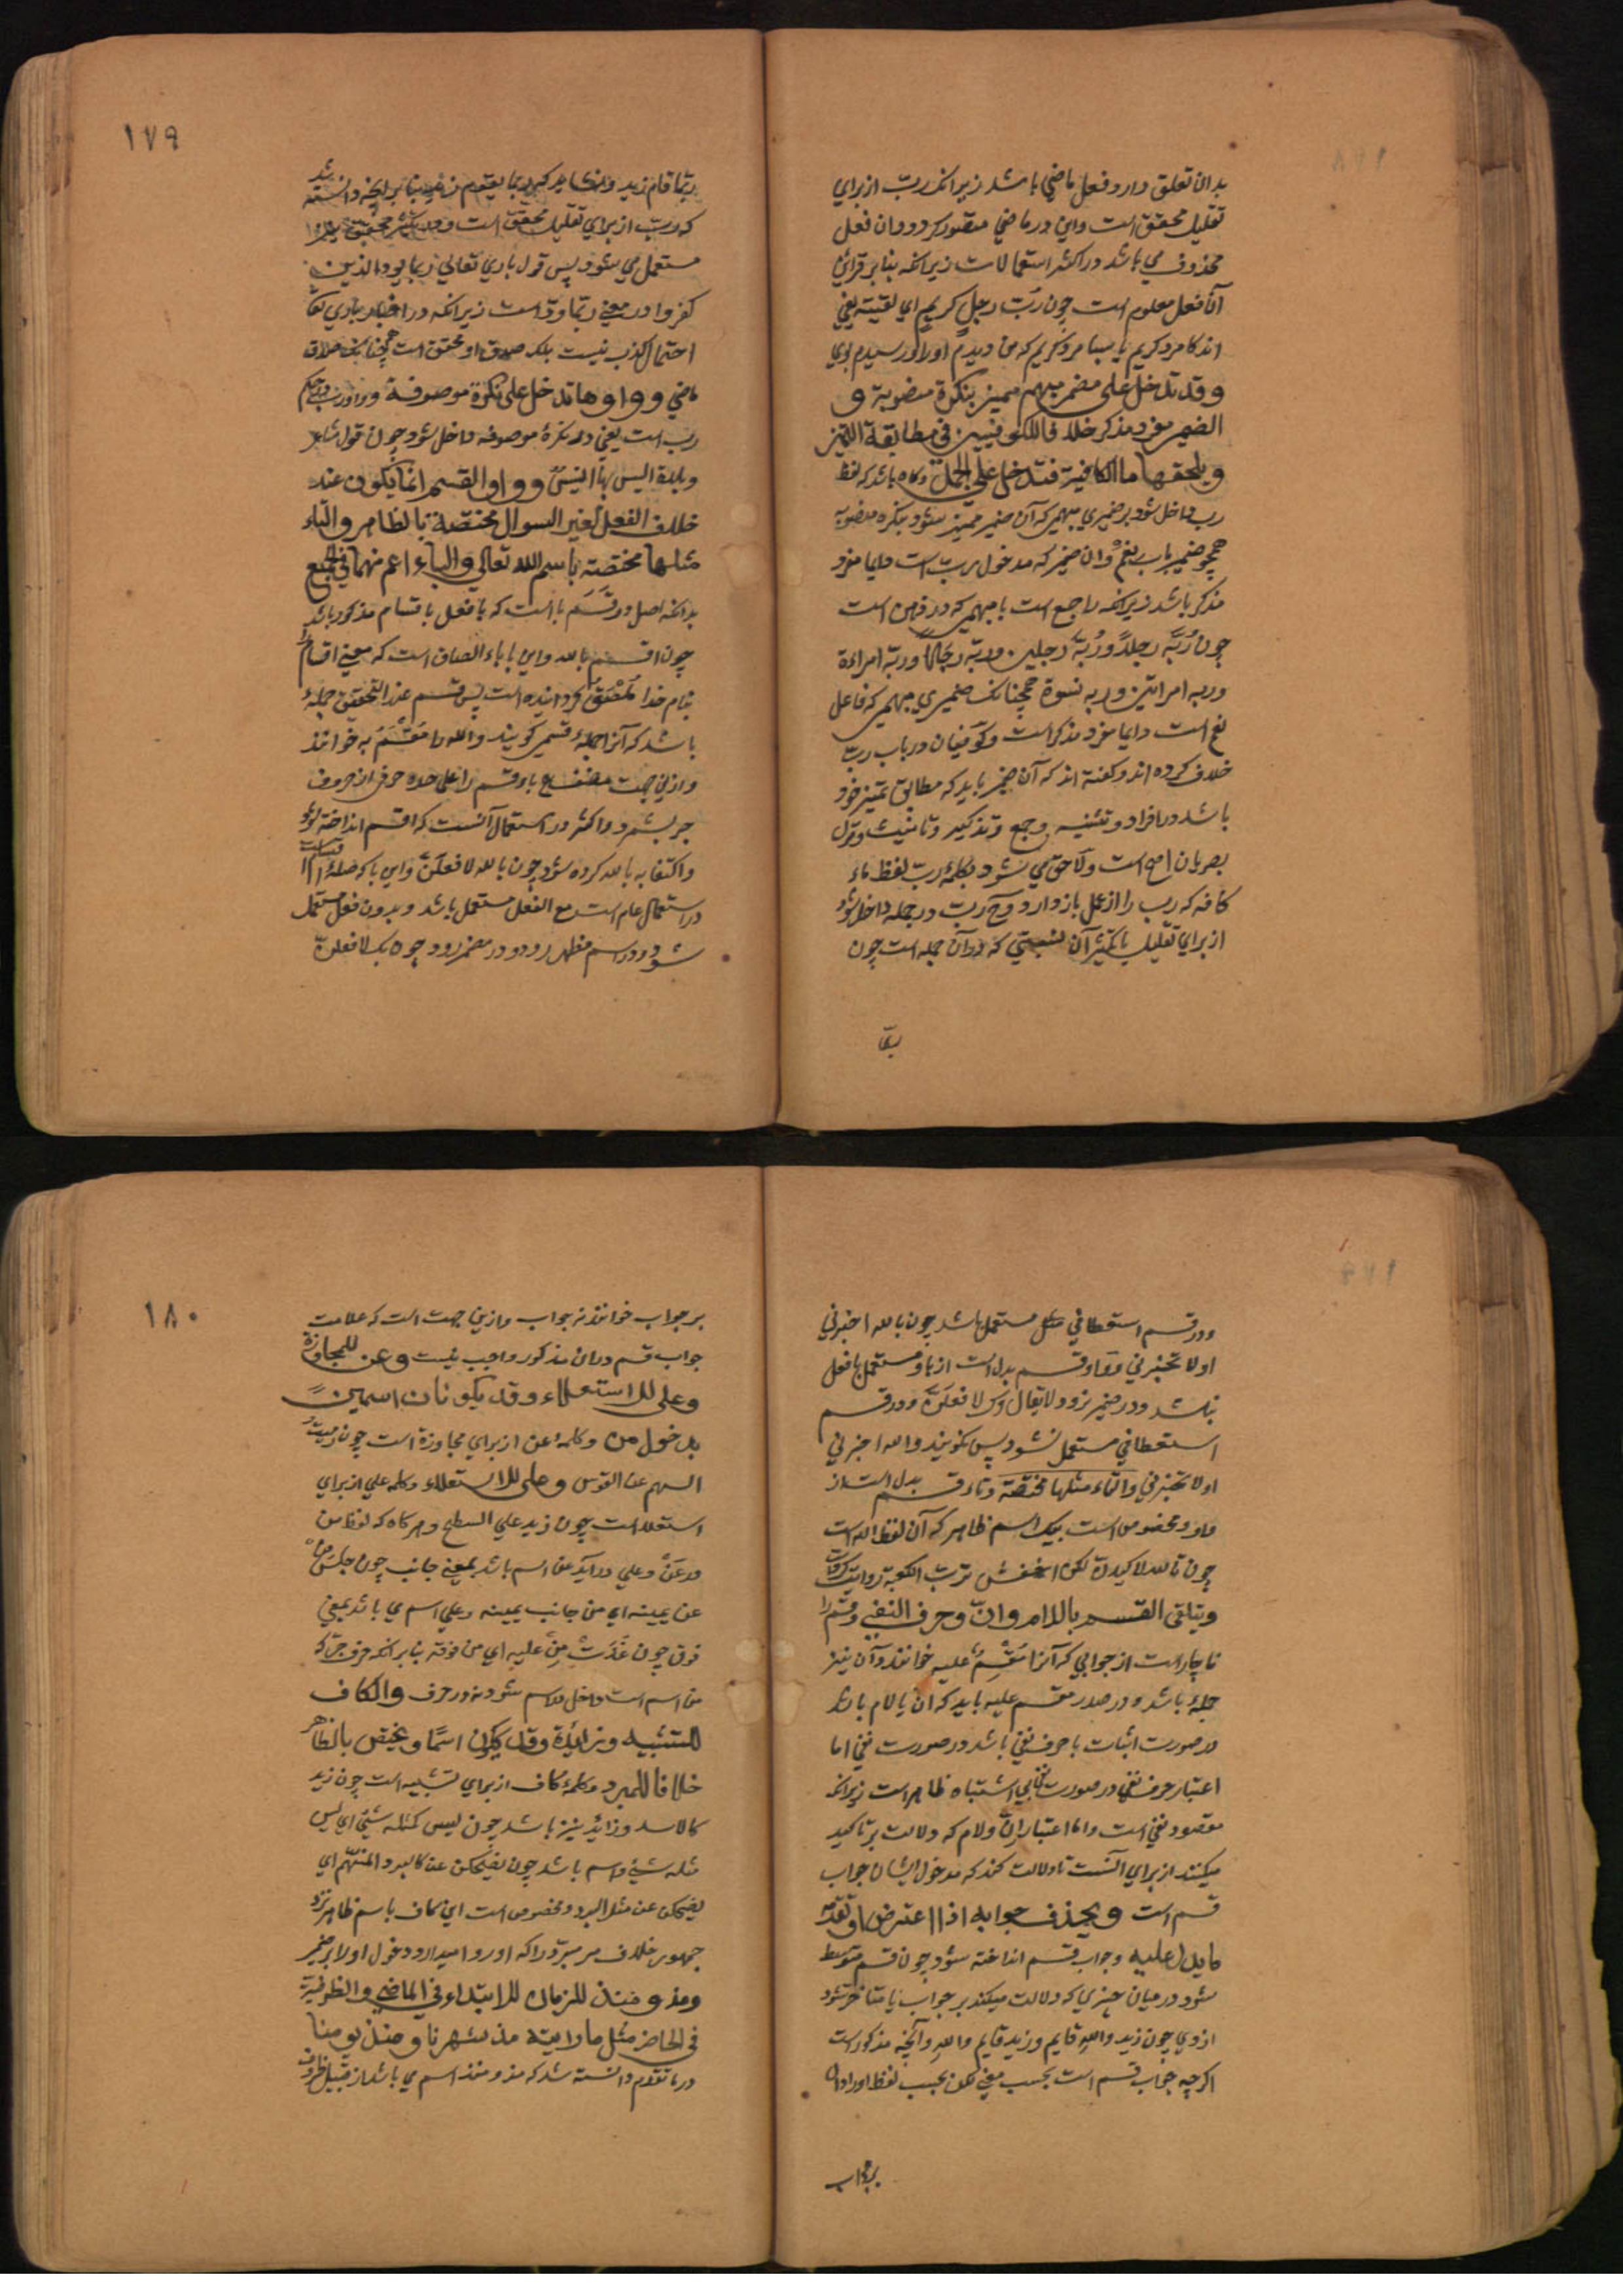 بدان تعلق دارد فعل ماضي باشد زيرانكه ربّ از براي
تقليل محقق است واين در ماضي متصور كردد وان فعل
محذوف مي باشد در اكثر استعمالات زيرانكه بنابر قرائن
آن فعل معلوم است چون ربّ رجلٍ كريمٍ اي لقيته يعني
اندكا مرد كريم يا بسا مرد كريم كه من ديدم اورا و رسيدم بوي
وقد تدخل على مضمر مبهم مميز بنكرة منصوبة و
الضمير مفرد مذكر خلافا للكوفيين في مطابقة التميز
ويلحقها ما الكافة فتدخل على الجمل وكاه باشد كه لفظ
رب داخل شود بر ضميري مبهم كه آن ضمير مميز شود بنكره منصوبه
همچو ضمير باب نعم وان ضمير كه مدخول رب است دايما مفرد
مذكر باشد زيرانكه راجع است با مبهمي كه در ذهن است
چون ربّه رجلاً وربّه رجلين وربّه رجالا وربّه امراءة
وربه امراتين وربه نسوة همچنانكه ضميري مبهم كه فاعل
نعم است دايما مفرد مذكر است وكوفيان در باب رب
خلاف كرده اند وكفته اند كه آن ضمير بايد كه مطابق تميز خود
باشد در افراد وتثنيه وجمع وتذكير وتانيث وقول
بصريان اصح است ولاحق مي شود بكلمهٔ ربّ لفظ ماء
كافه كه رب را از عمل باز دارد وح ربّ در جمله داخل شود
از براي تقليل يا تكثير آن نسبتي كه در آن جمله است چون
ربّما
١٧٩
ربّما قام زيد
كه ربّ از براي تقليل محقق است
مستعمل مي شود پس قول باري تعالي ربما يود الذين
كفروا در معني ربما ودّ است زيرانكه در اخبار باري تعا
احتمال كذب نيست بلكه صدق او محقق است همچنانكه صدق
ماضي وواوها تدخل على نكرة موصوفة وواو رب در حكم
رب است يعني در نكرهٔ موصوفه داخل شود چون قول شاعر
وبلدة ليس بها انيسٌ وواو القسم انما يكون عند
حذف الفعل لغير السوال مختصة بالظاهر والتاء
مثلها مختصة باسم الله تعالي والباء اعم منهما في الجميع
بدانكه اصل در قسم با است كه با فعل باقسام مذكور باشد
چون اقسم بالله واين با باء الصاق است كه معني اقسام را
بنام خدا ملصق كردانيده است پس قسم عند التحقيق جملهٔ
باشد كه آنرا جملهٔ قسمي كويند والله را مقسم به خوانند
وازين جهت مصنف باء قسم را علي حده حرفي از حروف
جر بشمرد واكثر در استعمال آنست كه اقسم انداخته شود
واكتفا به بالله كرده شود چون بالله لافعلن واين با كه صلهٔ
در استعمال عام است مع الفعل مستعمل باشد وبدون فعل مستعمل
شود ودر اسم مظهر رود ودر مضمر رود چون بك لافعلنّ
ودر قسم استعطافي مستعمل باشد چون بالله اخبرني
اولا تخبرني وواو قسم بدل است از با ومستعمل با فعل
نباشد ودر ضمير نرود لا يقال وك لافعلنّ ودر قسم
استعطافي مستعمل نشود پس نكويند والله اخبرني
اولا تخبرني والتاء مثلها مختصة وتاء قسم بدل است از
واو ومخصوص است بيك اسم ظاهر كه آن لفظ الله است
چون تالله لاكيدن لكن اخفش تربّ الكعبة روايت كرده است
ويتلقى القسم باللام وانّ وحرف النفي وقسم را
ناچار است از جوابي كه آنرا مقسم عليه خوانند وآن نيز
جملهٔ باشد ودر صدر مقسم عليه بايد كه ان يا لام باشد
در صورت اثبات يا حرف نفي باشد در صورت نفي اما
اعتبار حرف نفي در صورت نفي بي اشتباه ظاهر است زيرانكه
مقصود نفي است واما اعتبار انّ ولام كه دلالت بر تاكيد
ميكنند از براي آنست تا دلالت كند كه مدخول ايشان جواب
قسم است ويحذف جوابه اذا اعترض او تقدمه
ما يدل عليه وجواب قسم انداخته شود چون قسم متوسط
شود در ميان چيزي كه دلالت ميكند بر جواب يا متاخر شود
ازوي چون زيد والله قايم وزيد قايم والله وآنچه مذكور است
اكرچه جواب قسم است بحسب معني لكن بحسب لفظ اورا دال
بر جواب
١٨٠
بر جواب خوانند نه جواب وازين جهت است كه علامت
جواب قسم دران مذكور واجب نيست وعن للمجاوزة
وعلى للاستعلاء وقد يكونان اسمين
بدخول من وكلمهٔ عن از براي مجاوزة است چون رميت
السهم عن القوس وعلى للاستعلاء وكلمه علي از براي
استعلا است چون زيد علي السطح وهركاه كه لفظ من
در عن وعلي درآيد عن اسم باشد بمعني جانب چون جلست من
عن يمينه اي من جانب يمينه وعلي اسم مي باشد بمعني
فوق چون غدت من عليه اي من فوقه بنابر انكه حرف جر كه
من است داخل در اسم شود نه در حرف والكاف
للتشبيه وزائدة وقد يكون اسمًا ويختص بالظاهر
خلافا للمبرد وكلمهٔ كاف از براي تشبيه است چون زيد
كالاسد وزايد نيز باشد چون ليس كمثله شيئ اي ليس
مثله شيئ واسم باشد چون يضحكن عن كالبرد المنهمّ اي
يضحكن عن مثل البرد ومخصوص است اين كاف باسم ظاهر نزد
جمهور خلاف مر مبرّد را كه او روا ميدارد دخول اورا بر ضمير
ومذ ومنذ للزمان للابتداء في الماضي والظرفية
في الحاضر مثل ما رايته مذ شهرنا ومنذ يومنا
در ما تقدم دانسته شد كه مذ ومنذ اسم مي باشد از قبيل ظروف